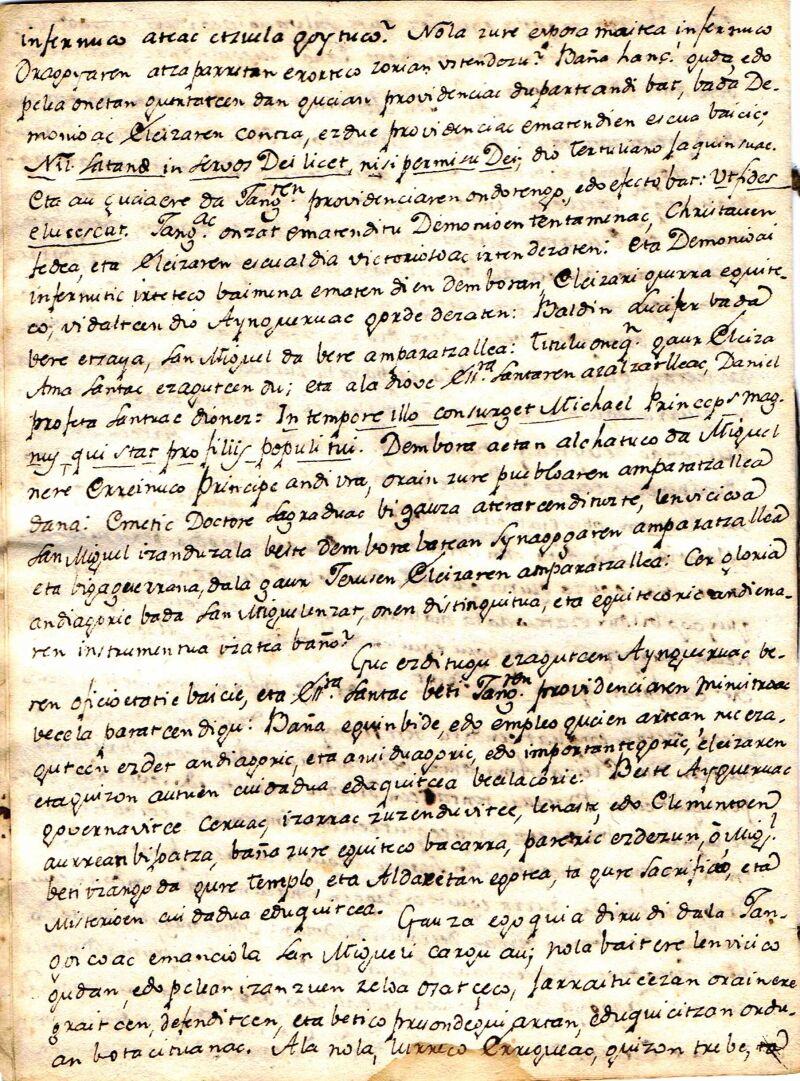 infernuco ateac etzuela goytuco? Nola zure esposa maitea, infernuco
Dragoyaren atzaparretan erorteco zorian utendezu? Baña hanc. guda, edo
pelea onetan guertatcen dan gucian providenciac du parte andi bat, bada De-
monioac Eleizaren contra, ez due providenciac ematen dien escua baicic;
Nil Satanæ in servos Dei licet, nisi permisu Dei, dio Tertuliano jaquinsuac.
Eta au guciaere da Tang.ren providenciaren ondorengo, edo efecto bat: Ut fides
elucescat. Tang.ac onzat ematenditu Demonioen tentaminac, Christauen
fedea, eta Eleizaren escualdia victoriosoac irtendezaten: Eta Demonioai
infernutic irteteco baimena ematen dien demboran, Eleizari gurra eguite-
co, vidaltcen dio Aynguervac gorde dezaten: Baldin Lucifer bada
bere etsaya, San Miguel da bere amparatzallea: Titulu oneq.n gaur Eleiza
Ama Santac ezagutcen du; eta ala diove Ess.ra Santaren azalzatlleac, Daniel
profeta Santuac dionez: In tempore illo consurget Michael Princeps mag-
nus, qui stat pro filiis populi tui. Dembora aetan alchatuco da Miguel
nere Erreinuco Principe andi ura, orain zure puebloaren amparatzallea
dana: Emetic Doctore Sagraduac bi gauza ateratcen dituzte, lenvicicoa
San Miguel izanduzala beste dembora batean Synagogaren amparatzallea
eta bigaguerrana, dala gaur Jesusen Eleizaren amparatzallea: Cer gloria
andiagoric bada San Miguelenzat, onen distinguitua, eta eguitecoric andiena-
ren instrumentua izatea baño?
Guc ez ditugu ezagutcen Aynguervac be-
ren oficioetatic baicic, eta Ess.ra Santac beti Tang.ren providenciaren ministroac
becela paratcen digu: Baña eguinbide, edo empleo gucien artean, nic eza-
gutcen ez det andiagoric, eta ansiduagoric, edo importantegoric, eleizaren
eta guizon autuen cuidadua eduquitcea becelacoric: Beste Ayguervac
governavitce ceruac, izarrac zuzenduvitce, lenaste, edo Elementoen
aurrean bifoatza, baña zure eguiteco bacarra, pareric ez dezun, ô Mig.l
beti izango da gure Templo, eta Aldaretan egotea, ta gure Sacrificio, eta
Misterioen cuidadua eduquitcea. Gauza egoquia dirudi dala Jan-
goicoac emanciola San Migueli cargu au; nola bait ere lenvicico
gudan, edo pelean izan zuen zeloa osatceco, jarraitucezan orain ere
grait cen, defenditcen, eta betico prisondegui artan, eduquicitzan ordu-
an botacituanac. Ala nola, lurreco Erregueac, guizon trebe,